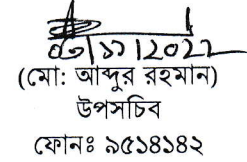 ০৩/১১/2022
(মো: আব্দুর রহমান)
উপসচিব
ফোনঃ ৯৫১৪১৪২